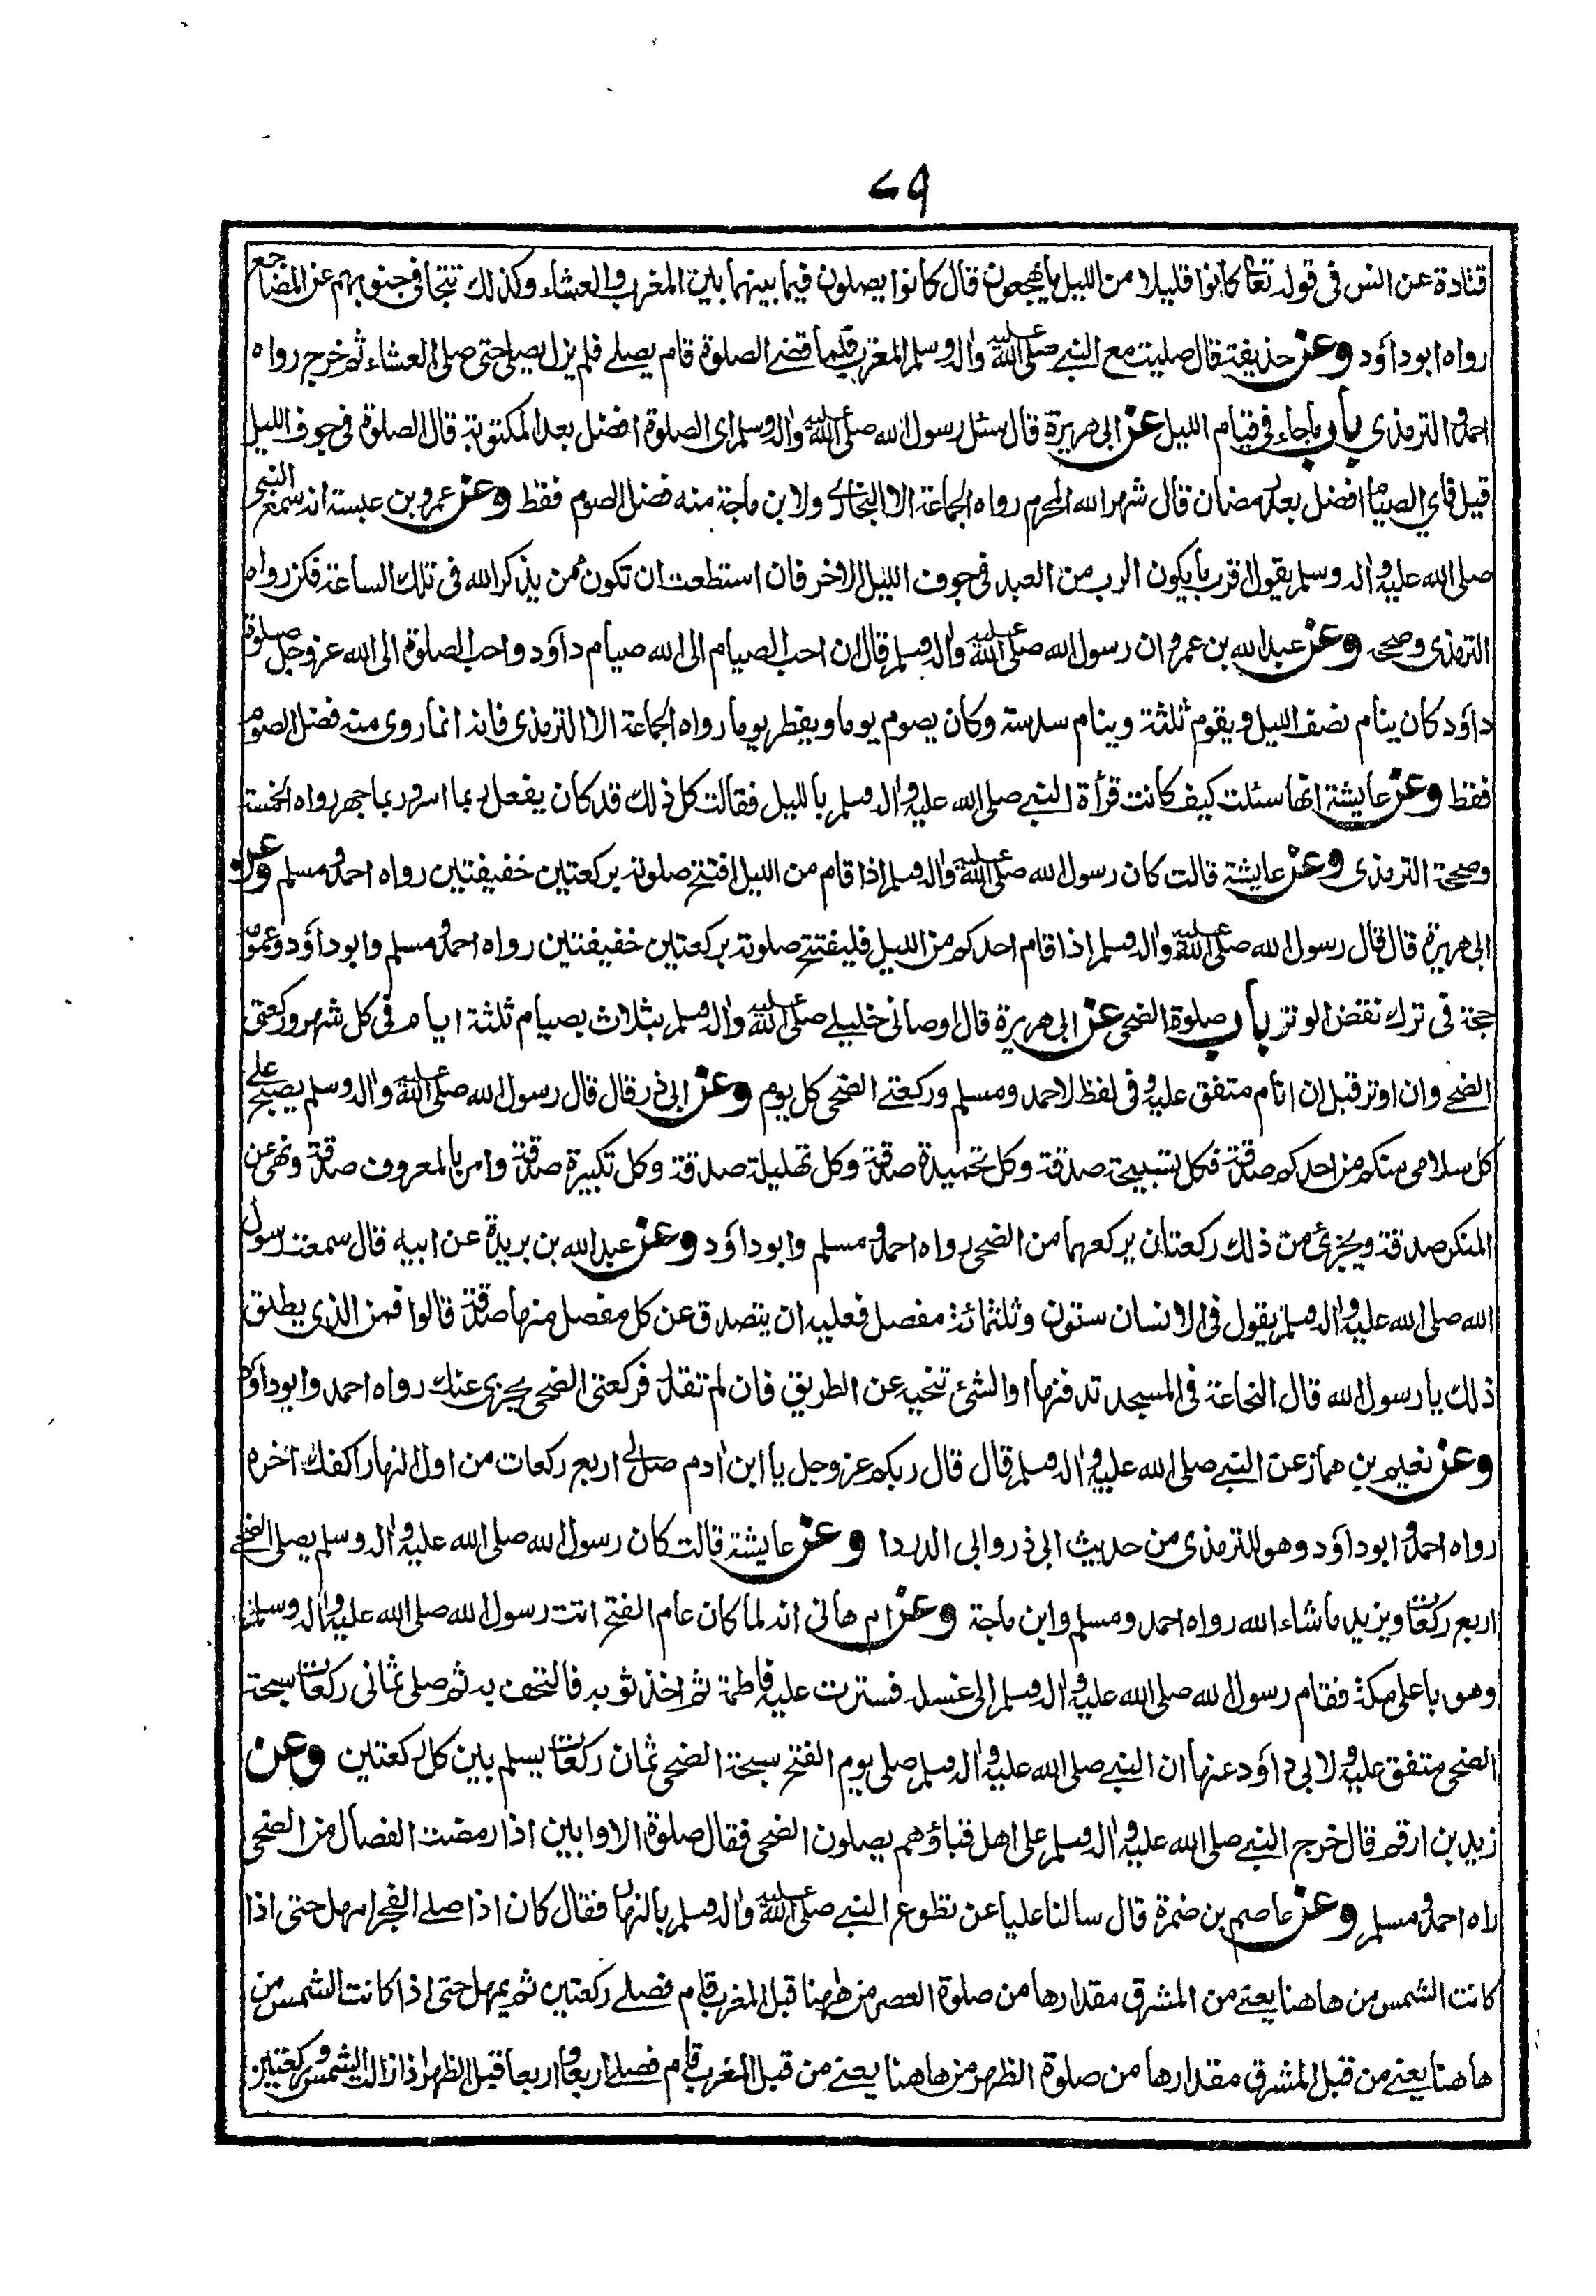 ٧٩
قتادة عن انس فى قوله تعالى كانوا قليلا من الليل ما يهجعون قال كانوا يصلون فيما بينهما بين المغرب والعشاء وكذلك تتجافى جنوبهم عن المضاجع
رواه ابوداؤد وعن حذيفة قال صليت مع النبي صلى الله عليه واله وسلم المغرب فلما قضى الصلوة قام يصلى فلم يزل يصلى حتى صلى العشاء ثم خرج رواه
احمد والترمذى باب ماجاء فى قيام الليل عن ابى هريرة قال سئل رسول الله صلى الله عليه واله وسلم اى الصلوة افضل بعد المكتوبة قال الصلوة فى جوف الليل
قيل فاي الصيام افضل بعد رمضان قال شهر الله المحرم رواه الجماعة الا البخارى ولابن ماجة منه فضل الصوم فقط وعن عمرو بن عبسة انه سمع النبى
صلى الله عليه واله وسلم يقول اقرب ما يكون الرب من العبد فى جوف الليل الاخر فان استطعت ان تكون ممن يذكر الله فى تلك الساعة فكن رواه
الترمذى وصححه وعن عبدالله بن عمرو ان رسول الله صلى الله عليه واله وسلم قال ان احب الصيام الى الله صيام داؤد واحب الصلوة الى الله عزوجل صلوة
داؤد كان ينام نصف الليل ويقوم ثلثة وينام سدسه وكان يصوم يوما ويفطر يوما رواه الجماعة الا الترمذى فانه انما روى منه فضل الصوم
فقط وعن عايشة انها سئلت كيف كانت قرأة النبي صلى الله عليه واله وسلم بالليل فقالت كل ذلك قد كان يفعل ربما اسر وربما جهر رواه الخمسة
وصححه الترمذى وعن عايشة قالت كان رسول الله صلى الله عليه واله وسلم اذا قام من الليل افتتح صلوته بركعتين خفيفتين رواه احمد ومسلم وعن
ابى هريرة قال قال رسول الله صلى الله عليه واله وسلم اذا قام احدكم من الليل فليفتتح صلوته بركعتين خفيفتين رواه احمد ومسلم وابوداؤد وعمومه
حجة فى ترك نقض الوتر باب صلوة الضحى عن ابى هريرة قال اوصانى خليلى صلى الله عليه واله وسلم بثلاث بصيام ثلثة ايام فى كل شهر وركعتى
الضحى وان اوتر قبل ان انام متفق عليه وفى لفظ لاحمد ومسلم وركعتى الضحى كل يوم وعن ابى ذر قال قال رسول الله صلى الله عليه واله وسلم يصبح على
كل سلامى منكم من احدكم صدقة فكل تسبيحة صدقة وكل تحميدة صدقة وكل تهليلة صدقة وكل تكبيرة صدقة وامر بالمعروف صدقة ونهى عن
المنكر صدقة ويجزئ من ذلك ركعتان يركعهما من الضحى رواه احمد ومسلم وابوداؤد وعن عبدالله بن بريدة عن ابيه قال سمعت رسول
الله صلى الله عليه واله وسلم يقول فى الانسان ستون وثلثمائة مفصل فعليه ان يتصدق عن كل مفصل منها صدقة قالوا فمن الذى يطيق
ذلك يا رسول الله قال النخاعة فى المسجد تدفنها اوالشئ تنحيه عن الطريق فان لم تقدر فركعتى الضحى يجزى عنك رواه احمد وابوداؤد
وعن نعيم بن همازعن النبي صلى الله عليه واله وسلم قال قال ربكم عزوجل يا ابن ادم صل لى اربع ركعات من اول النهار اكفك اخره
رواه احمد وابوداؤد وهو للترمذى من حديث ابى ذر وابى الدردا وعن عايشة قالت كان رسول الله صلى الله عليه واله وسلم يصلى الضحى
اربع ركعات ويزيد ماشاء الله رواه احمد ومسلم وابن ماجة وعن ام هانى انه لما كان عام الفتح اتت رسول الله صلى الله عليه واله وسلم
وهو باعلى مكة فقام رسول الله صلى الله عليه واله وسلم الى غسله فسترت عليه فاطمة ثم اخذ ثوبه فالتحف به ثم صلى ثمانى ركعات سبحة
الضحى متفق عليه ولابى داؤد عنها ان النبي صلى الله عليه واله وسلم صلى يوم الفتح سبحة الضحى ثمان ركعات يسلم بين كل ركعتين وعن
زيد بن ارقم قال خرج النبي صلى الله عليه واله وسلم على اهل قباؤهم يصلون الضحى فقال صلوة الاوابين اذا رمضت الفصال من الضحى
راه احمد ومسلم وعن عاصم بن ضمرة قال سالنا عليا عن تطوع النبي صلى الله عليه واله وسلم بالنهار فقال كان اذا صلى الفجر امهل حتى اذا
كانت الشمس من هاهنا يعنى من المشرق مقدارها من صلوة العصر من هاهنا قبل المغرب قام فصلى ركعتين ثم يمهل حتى اذا كانت الشمس من
هاهنا يعنى من قبل المشرق مقدارها من صلوة الظهر من هاهنا يعنى من قبل المغرب قام فصلى اربعا واربعا قبل الظهر اذا زالت الشمس وركعتين